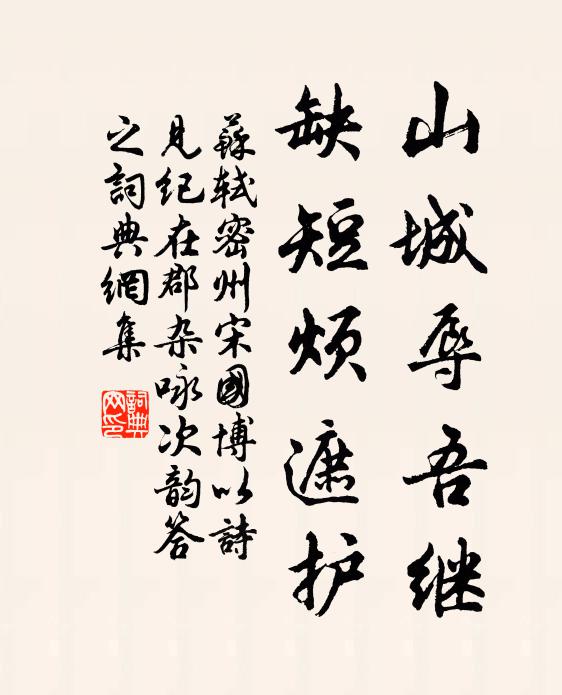 山城辱吾继
缺短烦遮护
蘇軾密州宋國博以詩
見纪在郡杂咏次韵答
之詞典網集
詞典
网印